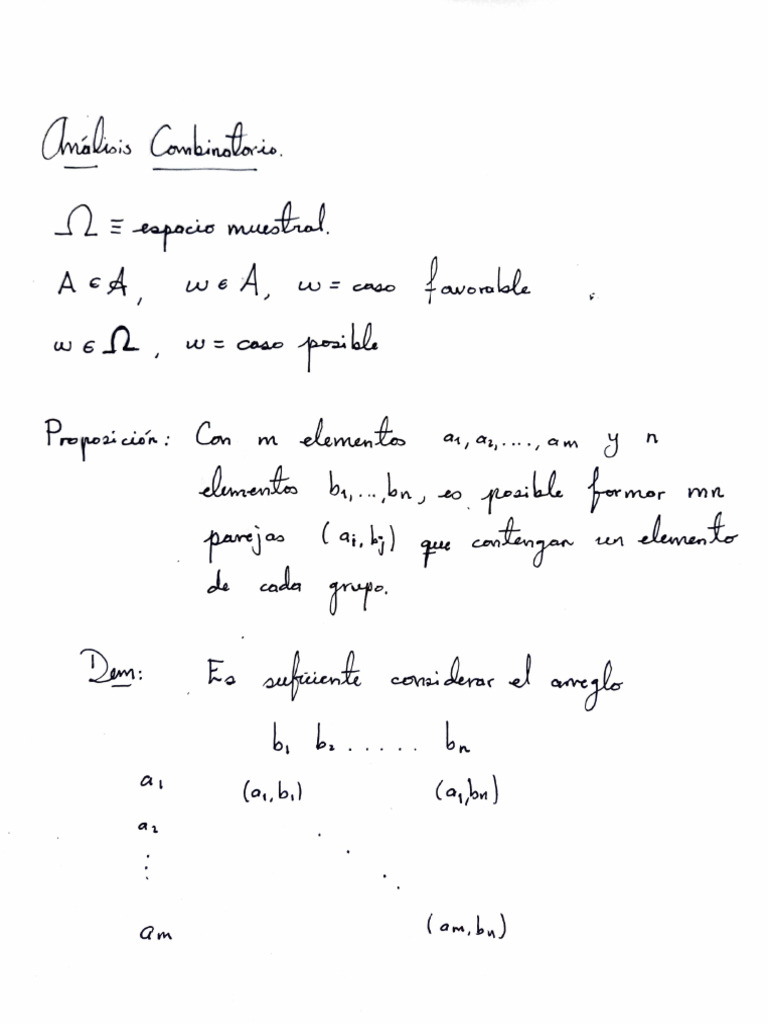 Análisis Combinatorio.
Ω ≡ espacio muestral.
A ∈ 𝒜, ω ∈ A, ω = caso favorable
ω ∈ Ω, ω = caso posible
Proposición: Con m elementos a₁, a₂, ...., am y n
elementos b₁, ..., bn, es posible formar mn
parejas (ai, bj) que contengan un elemento
de cada grupo.
Dem: Es suficiente considerar el arreglo
b₁ b₂ ...... bn
a₁ (a₁, b₁) (a₁, bn)
a₂
⋮ ⋱
am (am, bn)